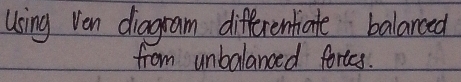 Using Ven diagram differentiate balanced
from unbalanced forces.